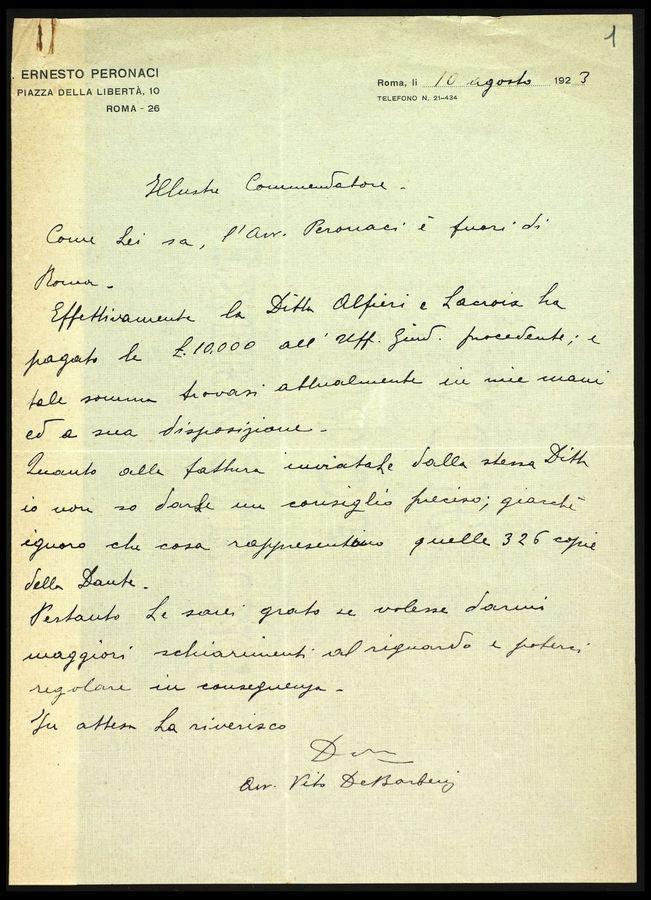 1
ERNESTO PERONACI
PIAZZA DELLA LIBERTÀ, 10
ROMA - 26
Roma, li 10 agosto 1923
TELEFONO N. 21-434
Illustre Commendatore -
Come Lei sa, l'Avv. Peronaci è fuori di
Roma -
Effettivamente la Ditta Alfieri e Lacroix ha
pagato le £. 10.000 all' Uff. Giud. procedente; e
tale somma trovasi attualmente in mie mani
ed a sua disposizione -
Quanto alla fattura inviatale dalla stessa Ditta
io non so darle un consiglio preciso; giacché
ignoro che cosa rappresentino quelle 326 copie
della Dante -
Pertanto Le sarei grato se volesse darmi
maggiori schiarimenti al riguardo e potersi
regolare in conseguenza -
In attesa La riverisco
Avv. Vito